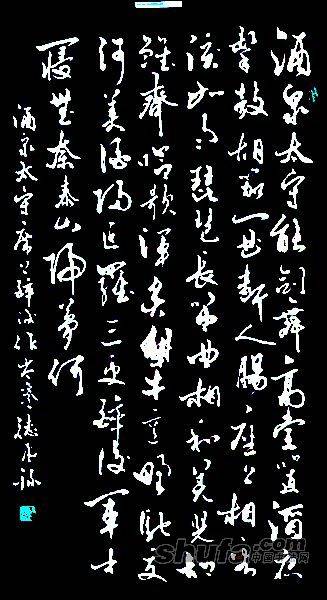 酒泉太守能劍舞高堂置酒夜
擊鼓胡笳一曲斷人腸座上相看
淚如雨琵琶長笛曲相和羌兒胡
雛齊唱歌渾炙犁牛烹野駝交
河美酒歸叵羅三更醉後軍中
寢無奈秦山歸夢何
酒泉太守席上醉後作岑參
shufa.com